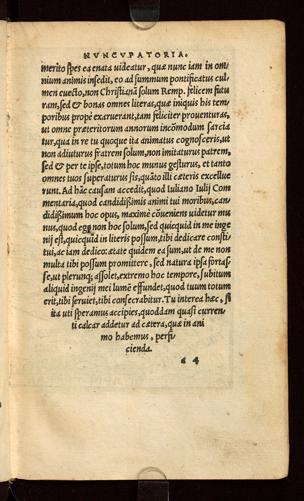 NVNCVPATORIA.
merito spes ea enata videatur, quæ nunc iam in om
nium animis insedit, eo ad summum pontificatus cul
men euecto, non Christianã solum Remp. felicem futu
ram, sed & bonas omnes literas, quæ iniquis his tem
poribus propè exaruerant, tam feliciter prouenturas,
ut omne præteritorum annorum incõmodum sarcia
tur, qua in re tu quoque ita animatus cognosceris, ut
non adiuturus fratrem solum, non imitaturus patrem,
sed & per te ipse, totum hoc munus gesturus, et tanto
omnes tuos superaturus sis, quãto illi cæteris excellue
runt. Ad hãc causam accedit, quod Iuliano Iulij Com
mentaria, quod candidißimis animi tui moribus, can
didißimum hoc opus, maximè cõueniens uidetur mu
nus, quod ego non hoc solum, sed quicquid in me inge
nij est, quicquid in literis possum, tibi dedicare consti
tui, ac iam dedico: ætate quidem ea sum, ut de me non
multa tibi possum promittere, sed natura ipsa fortas
se, ut plerunq; assolet, extremo hoc tempore, subitum
aliquid ingenij mei lumẽ effundet, quod tuum totum
erit, tibi seruiet, tibi consecrabitur. Tu interea hæc, si
ita uti speramus accipies, quoddam quasi curren
ti calcar addetur ad cætera, quæ in ani
mo habemus, perfi
cienda.
a 4